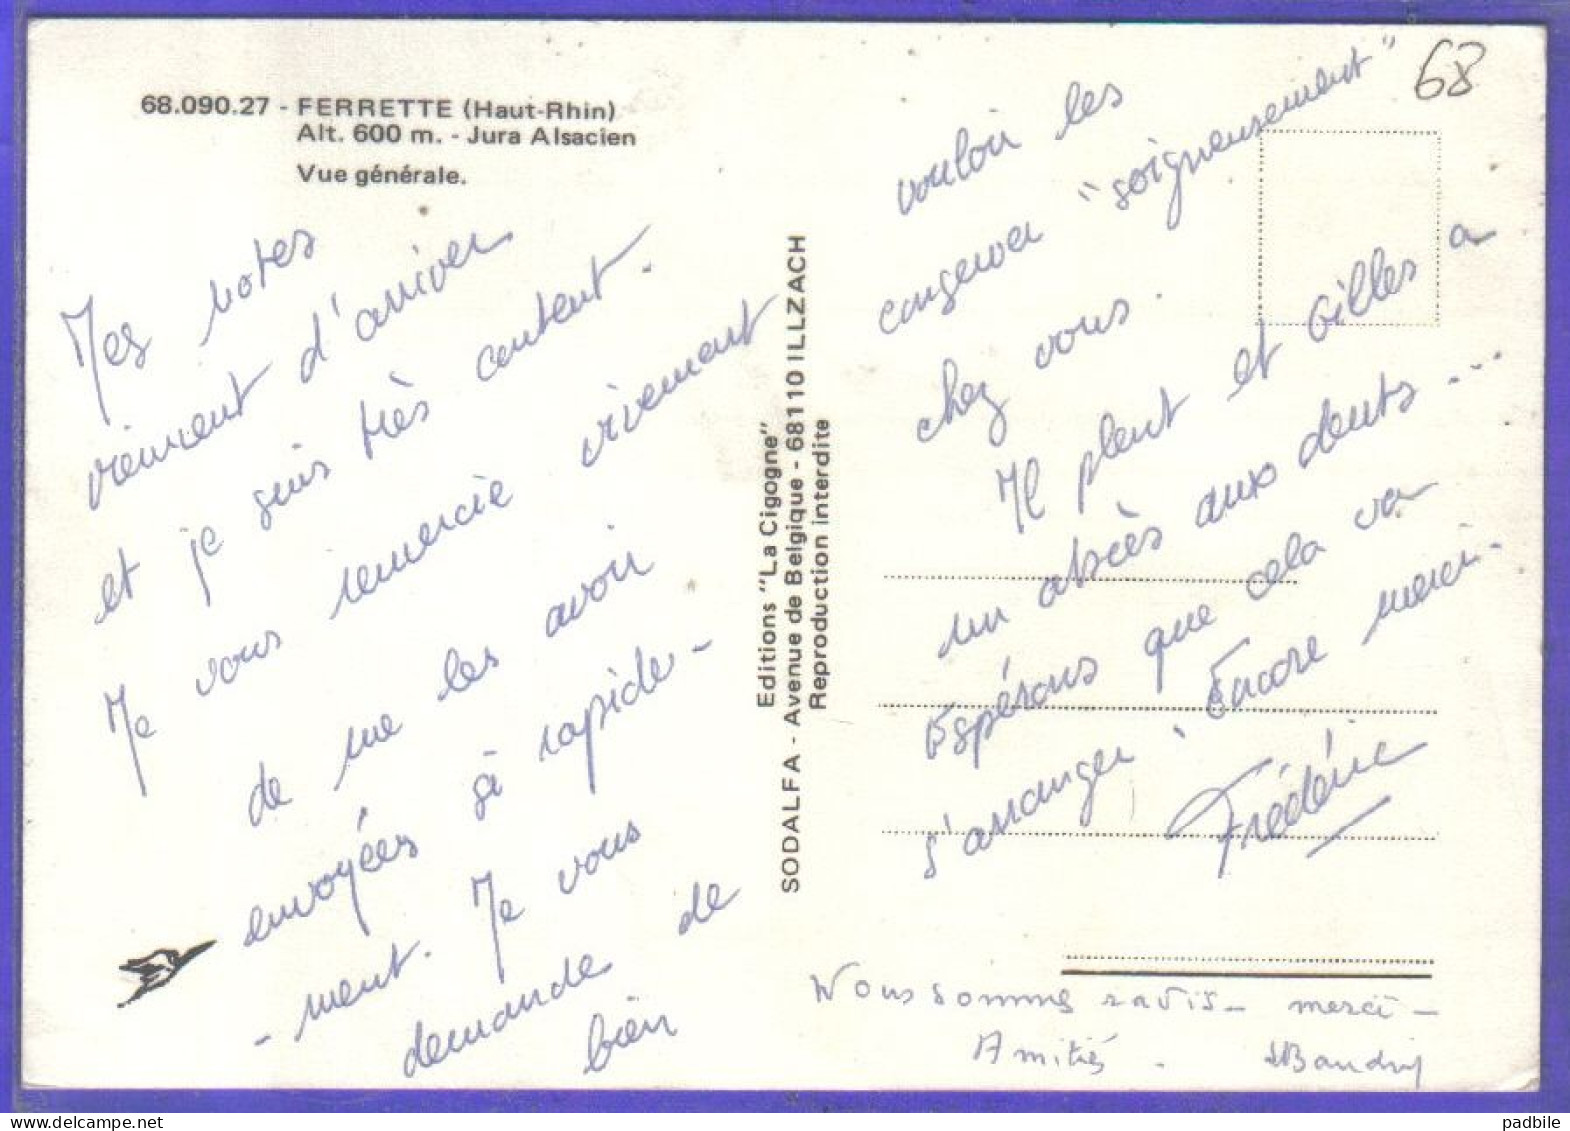 68.090.27 - FERRETTE (Haut-Rhin)
Alt. 600 m. - Jura Alsacien
Vue générale.
Mes notes
viennent d'arriver
et je suis très content.
Je vous remercie vivement
de me les avoir
envoyées si rapide-
-ment. Je vous
demande de
bien
Editions "La Cigogne"
SODALFA - Avenue de Belgique - 68110 ILLZACH
Reproduction interdite
68
vouloir les
conserver "soigneusement"
chez vous.
Il pleut et Gilles a
un abcès aux dents...
Espérons que cela va
s'arranger. Encore merci.
Frédéric
Nous somme ravis - merci -
Amitiés.
padbile